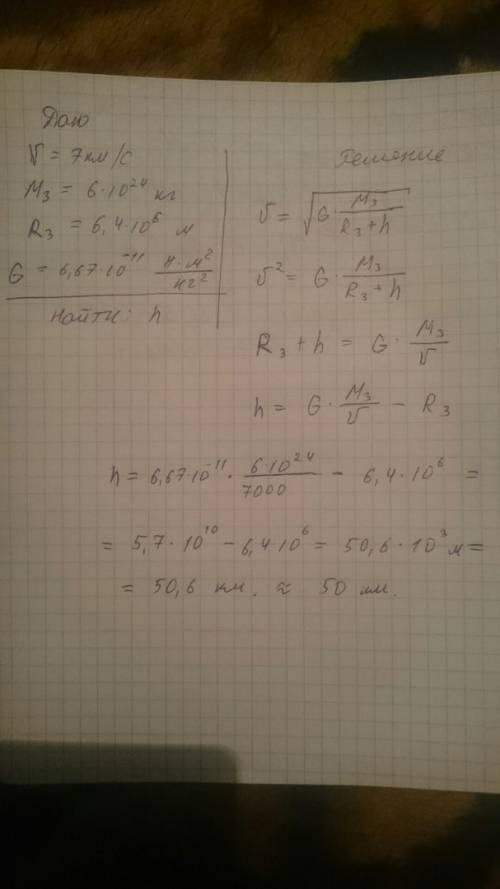 Дано
V = 7 км/с
M₃ = 6·10²⁴ кг
R₃ = 6,4·10⁶ м
G = 6,67·10⁻¹¹ Н·м²/кг²
Найти: h
Решение
v = √(G · M₃/(R₃+h))
v² = G · M₃/(R₃+h)
R₃ + h = G · M₃/V
h = G · M₃/V − R₃
h = 6,67·10⁻¹¹ · 6·10²⁴/7000 − 6,4·10⁶ =
= 5,7·10¹⁰ − 6,4·10⁶ = 50,6·10³ м =
= 50,6 км. ≈ 50 км.